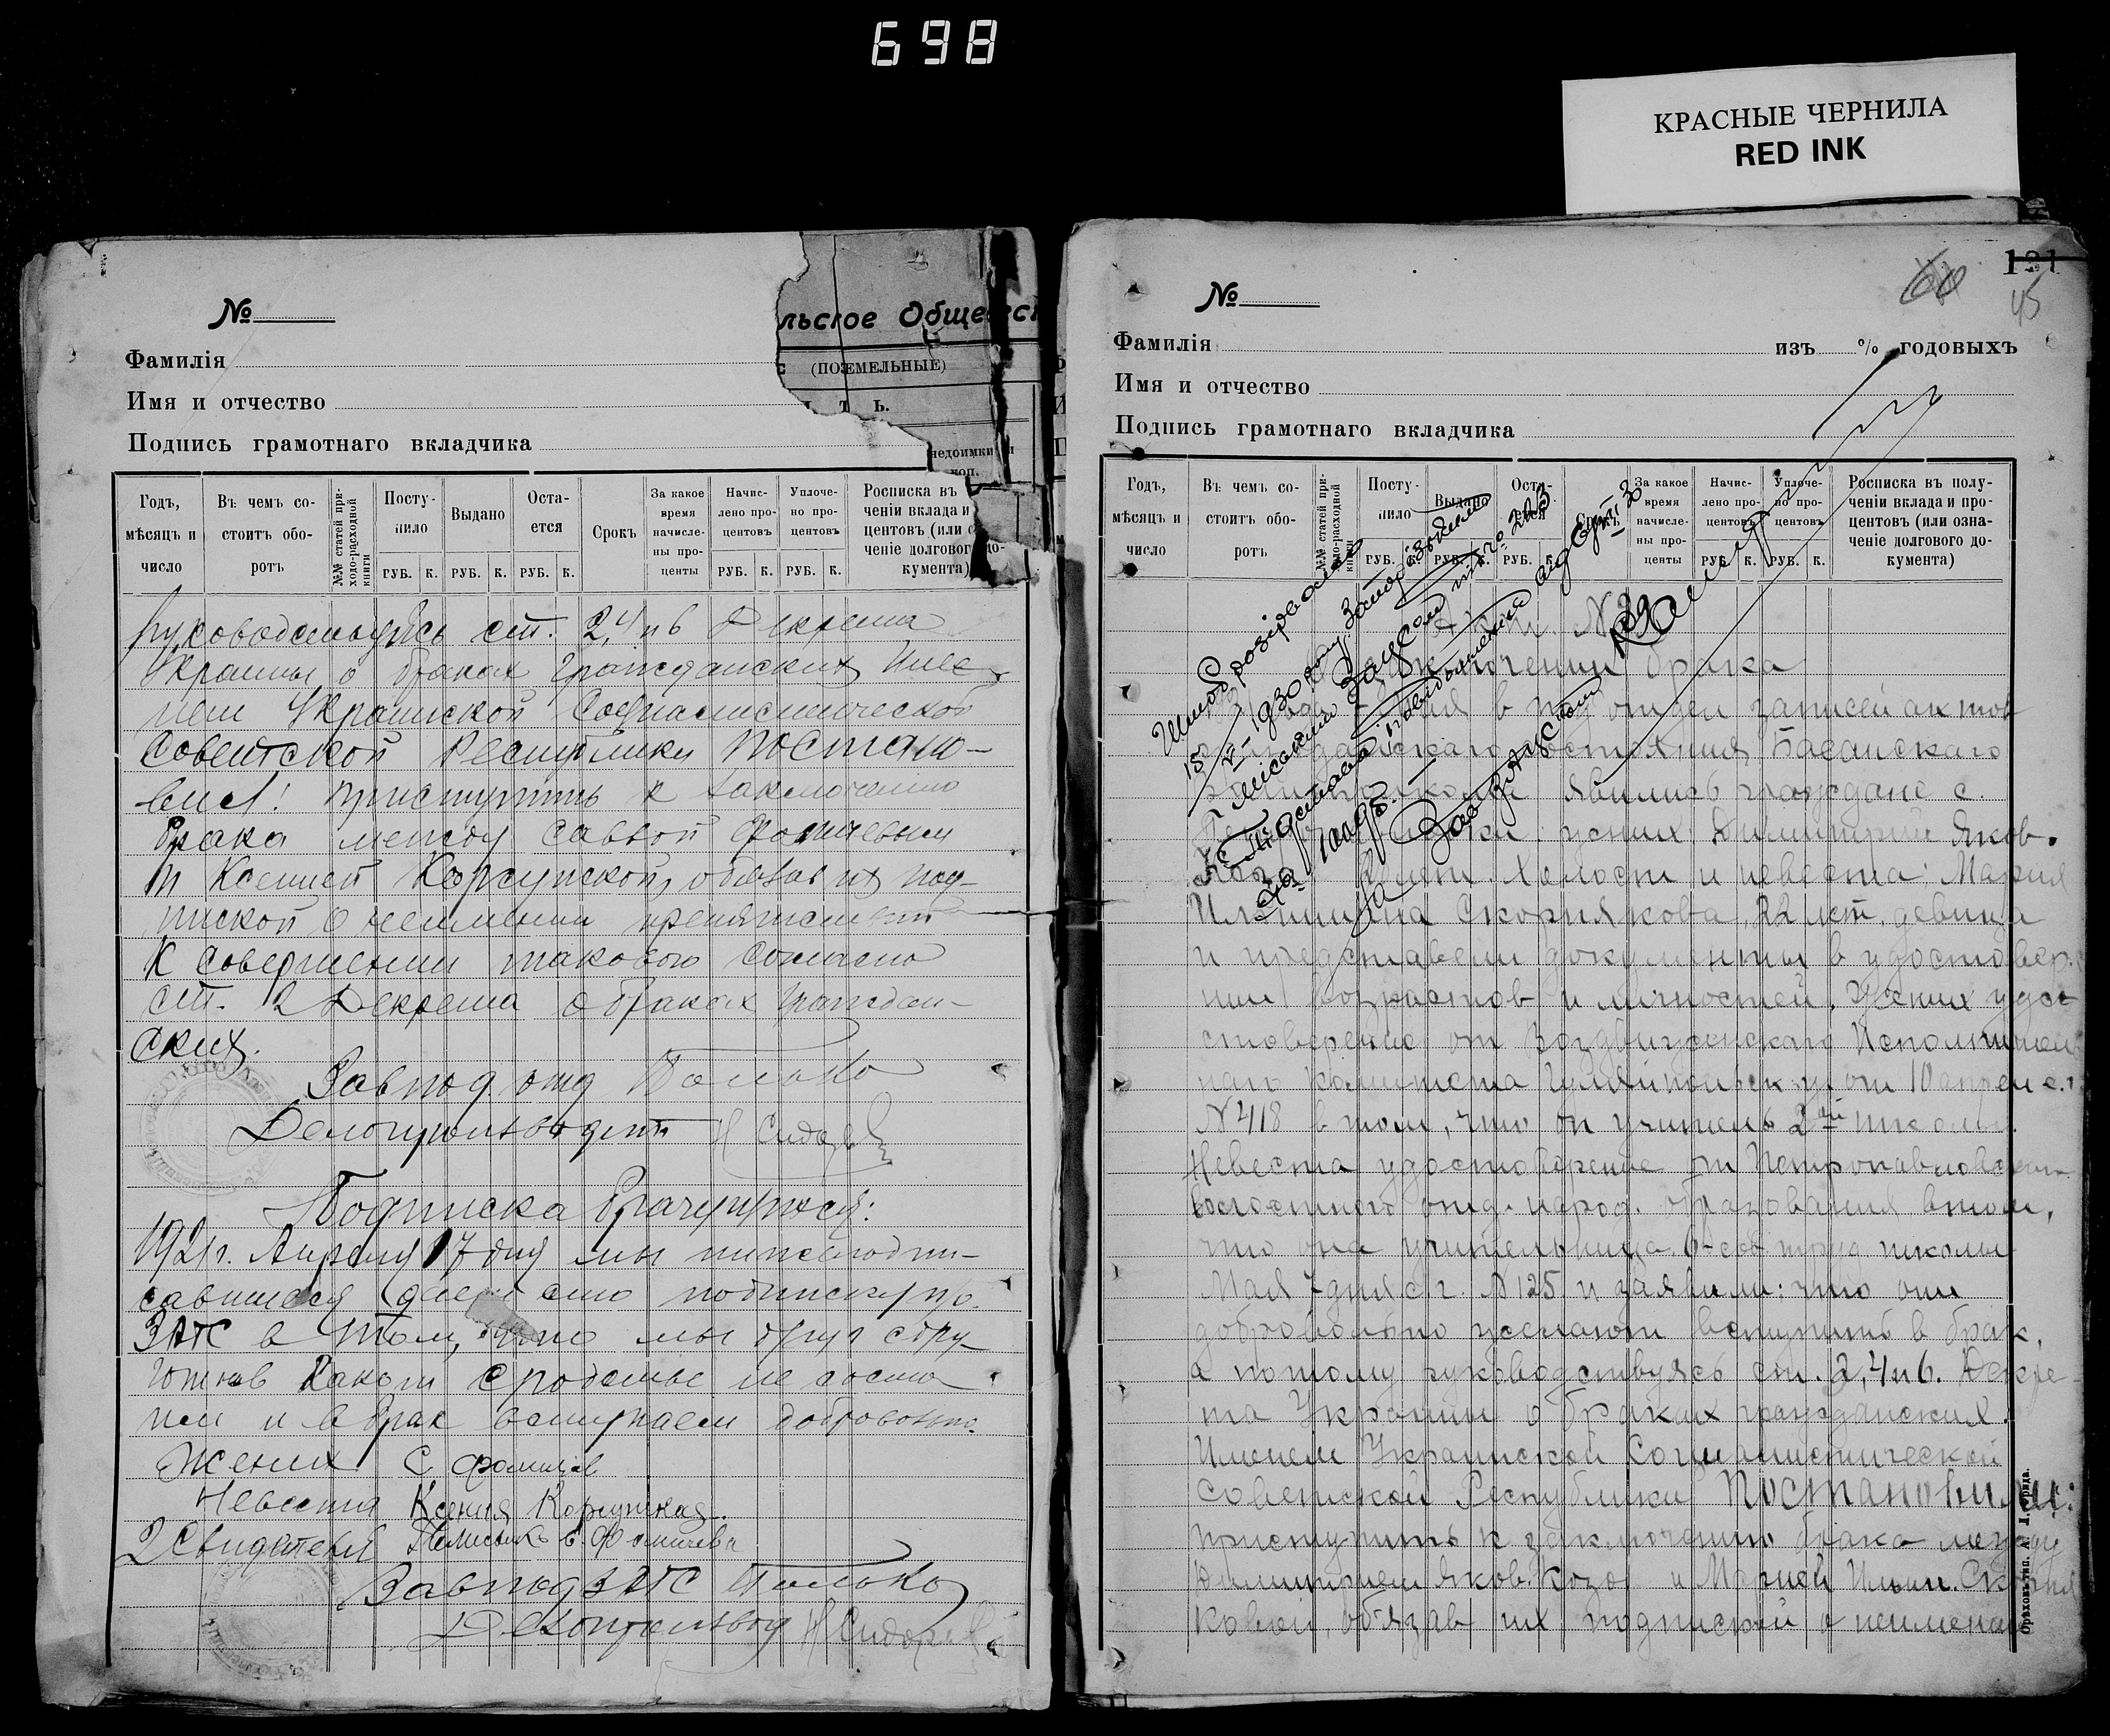 698
КРАСНЫЕ ЧЕРНИЛА
RED INK
№
Фамилія
Имя и отчество
Подпись грамотнаго вкладчика
льское Общес
(ПОЗЕМЕЛЬНЫЕ)
т ь.
недоимки
коп.
Годъ, мѣсяцъ и число
Въ чемъ состоитъ оборотъ
№№ статей приходо-расходной книги
Поступило
Выдано
Остается
Срокъ
За какое время начислены проценты
Начислено процентовъ
Уплочено процентовъ
Росписка въ чении вклада и центовъ (или о чение долгового до- кумента)
РУБ. К. РУБ. К. РУБ. К. РУБ. К. РУБ. К.
руководствуясь ст. 2,4 и 6 Декрета
Украины о браках гражданских Име-
нем Украинской Социалистической
Советской Республики Постано-
вил: приступить к заключению
брака между Саввой Фомичевым
и Ксенией Корсунской, обязав их под-
пиской о неимении препятствий
к совершении такового согласно
ст. 2 Декрета о браках граждан-
ских.
Завпод. отд
Делопроизводит Н Сидор
Подписка брачущихся:
1921г. Апреля 17 дня мы нижеподпи-
савшиеся даем сию подписку по.
ЗАГС в том, что мы друг с дру-
гом ни в каком сродстве не состо
им и в брак вступаем добровольно.
Жених С Фомичев
Невеста Ксения Корсунская.
2 Свидетеля Фомичева
Завпод ЗАГС
Делопроизвод Н Сидор
№
121
60
45
Фамилія изъ % годовыхъ
Имя и отчество
Подпись грамотнаго вкладчика
Годъ, мѣсяцъ и число
Въ чемъ состоитъ оборотъ
№№ статей приходо-расходной книги
Поступило
Выдано
Остается
Срокъ
За какое время начислены проценты
Начислено процентовъ
Уплочено процентовъ
Росписка въ полученіи вклада и процентовъ (или означеніе долгового документа)
РУБ. К. РУБ. К. РУБ. К. РУБ. К. РУБ. К.
Шлюб розірвано
15/VI–1930 року
Міським Загсом
Завзагсом
Акт №
о заключении брака
дня в под отдел записей актов
гражданскаго состояния Басанскаго
явились граждане с.
жених Димитрий Яков.
лет. Холост и невеста: Мария
Ильинична Скорнякова, 22 лет, девица
и представели документы в удостовер.
нии возрастов и личностей. Жених удо-
стоверение от Воздвиженскаго Исполнитель
наго комитета Гуляйпольск у. от 10 апреля с.г.
№ 418 в том, что он учитель 2ой школы.
Невеста удостоверение от Петропавловскаго
волостного отд. народ. образования в том,
что она учительница 6-сов труд школы
Мая 7 дня с г. № 125 и заявили: что они
добровольно желают вступить в брак,
а потому руководствуясь ст. 2,4 и 6. Декре-
та Украины о браках гражданских.
Именем Украинской Социалистической
Советской Республики Постановил:
приступить к заключению брака между
Димитрием Яков. Козо и Марией Ильин. Скорня
ковой, обязав их подпиской о неимении
Орѣховъ тип.